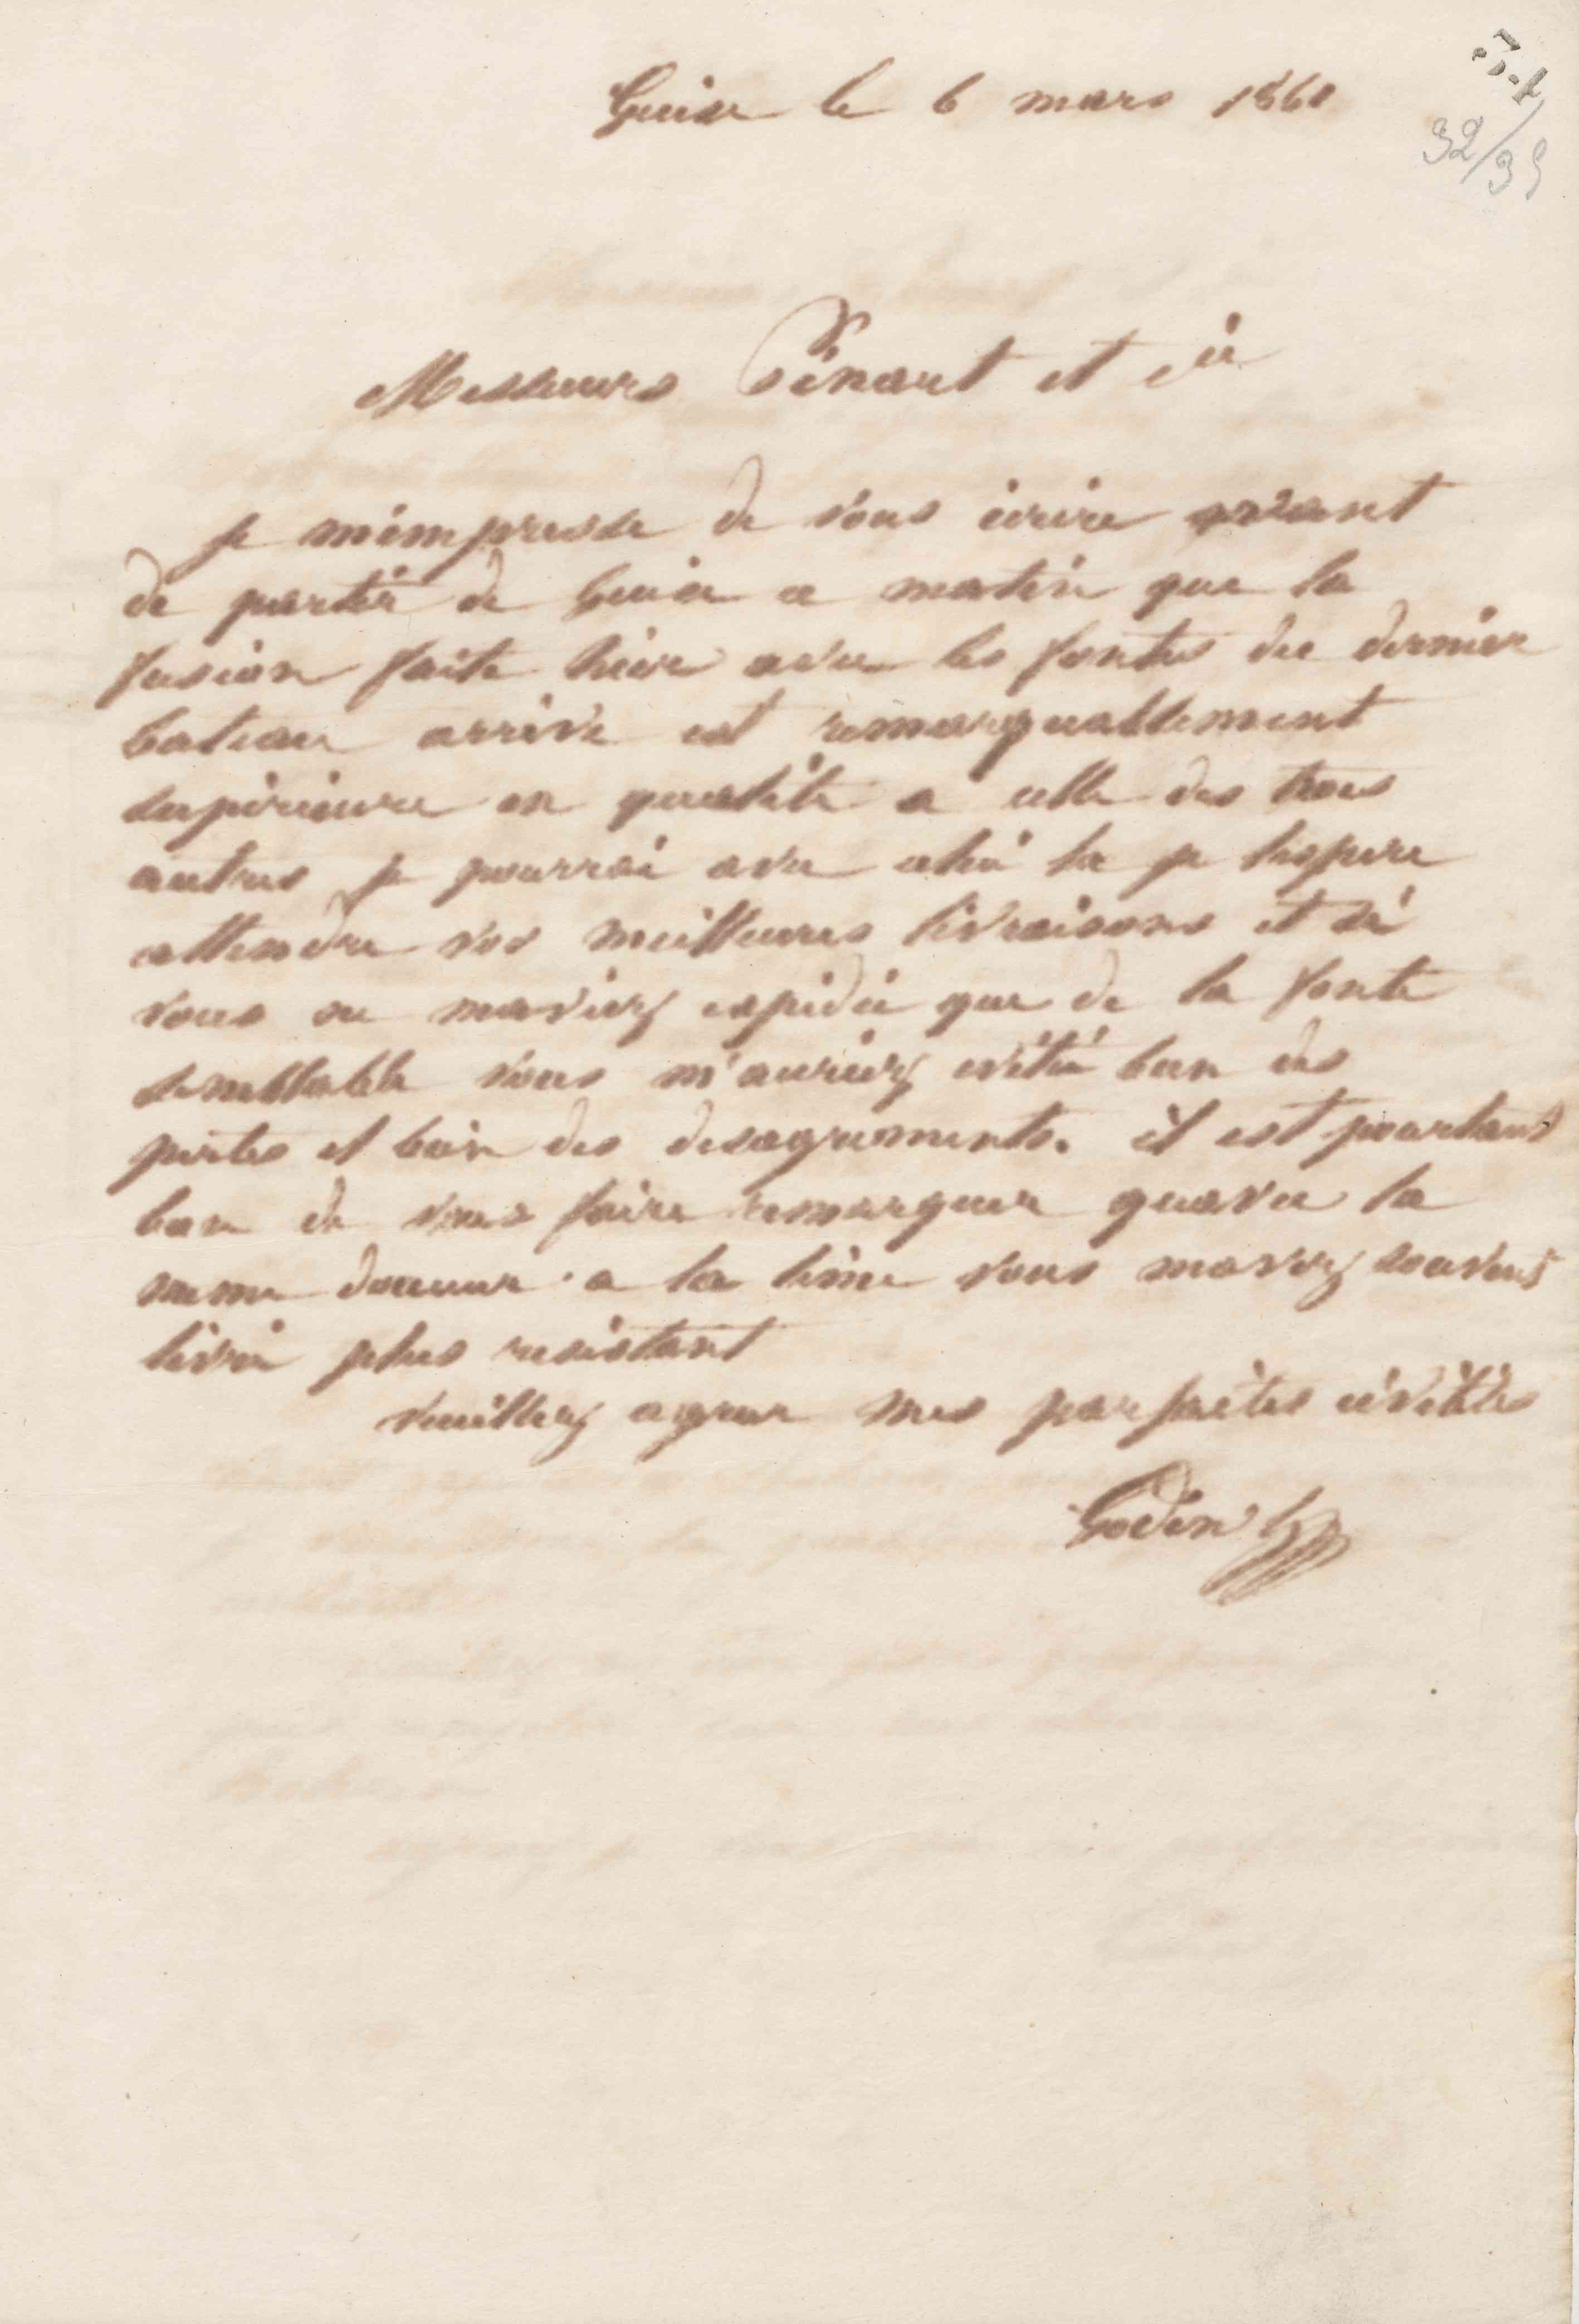 Guise le 6 mars 1861
32/35
Messieurs Sinart et cie
je m'empresse de vous écrire avant
de partir de Guise ce matin que la
fusion faite hier avec les fontes du dernier
bateau arrivé est remarquablement
superieure en qualité a celle des trois
autres je pourrai avec celui la je l'espere
attendre vos meilleures livraisons et si
vous ne maviez expedié que de la fonte
semblable vous m'auriez evité bien des
pertes et bien des desagrements. il est pourtant
bon de vous faire remarquer quavec la
meme douceur a la lime vous mavez souvent
livré plus resistant
veuillez agreer mes parfaites civilités
Godin